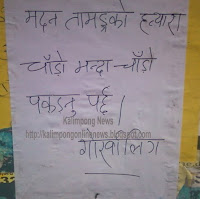 मदन तामाङ्गको हत्यारा
चाँडो भन्दा चाँडो
पक्रनु पर्छ।
Kalimpong News
http://kalimpongonlinenews.blogspot.com
गोरखालिग